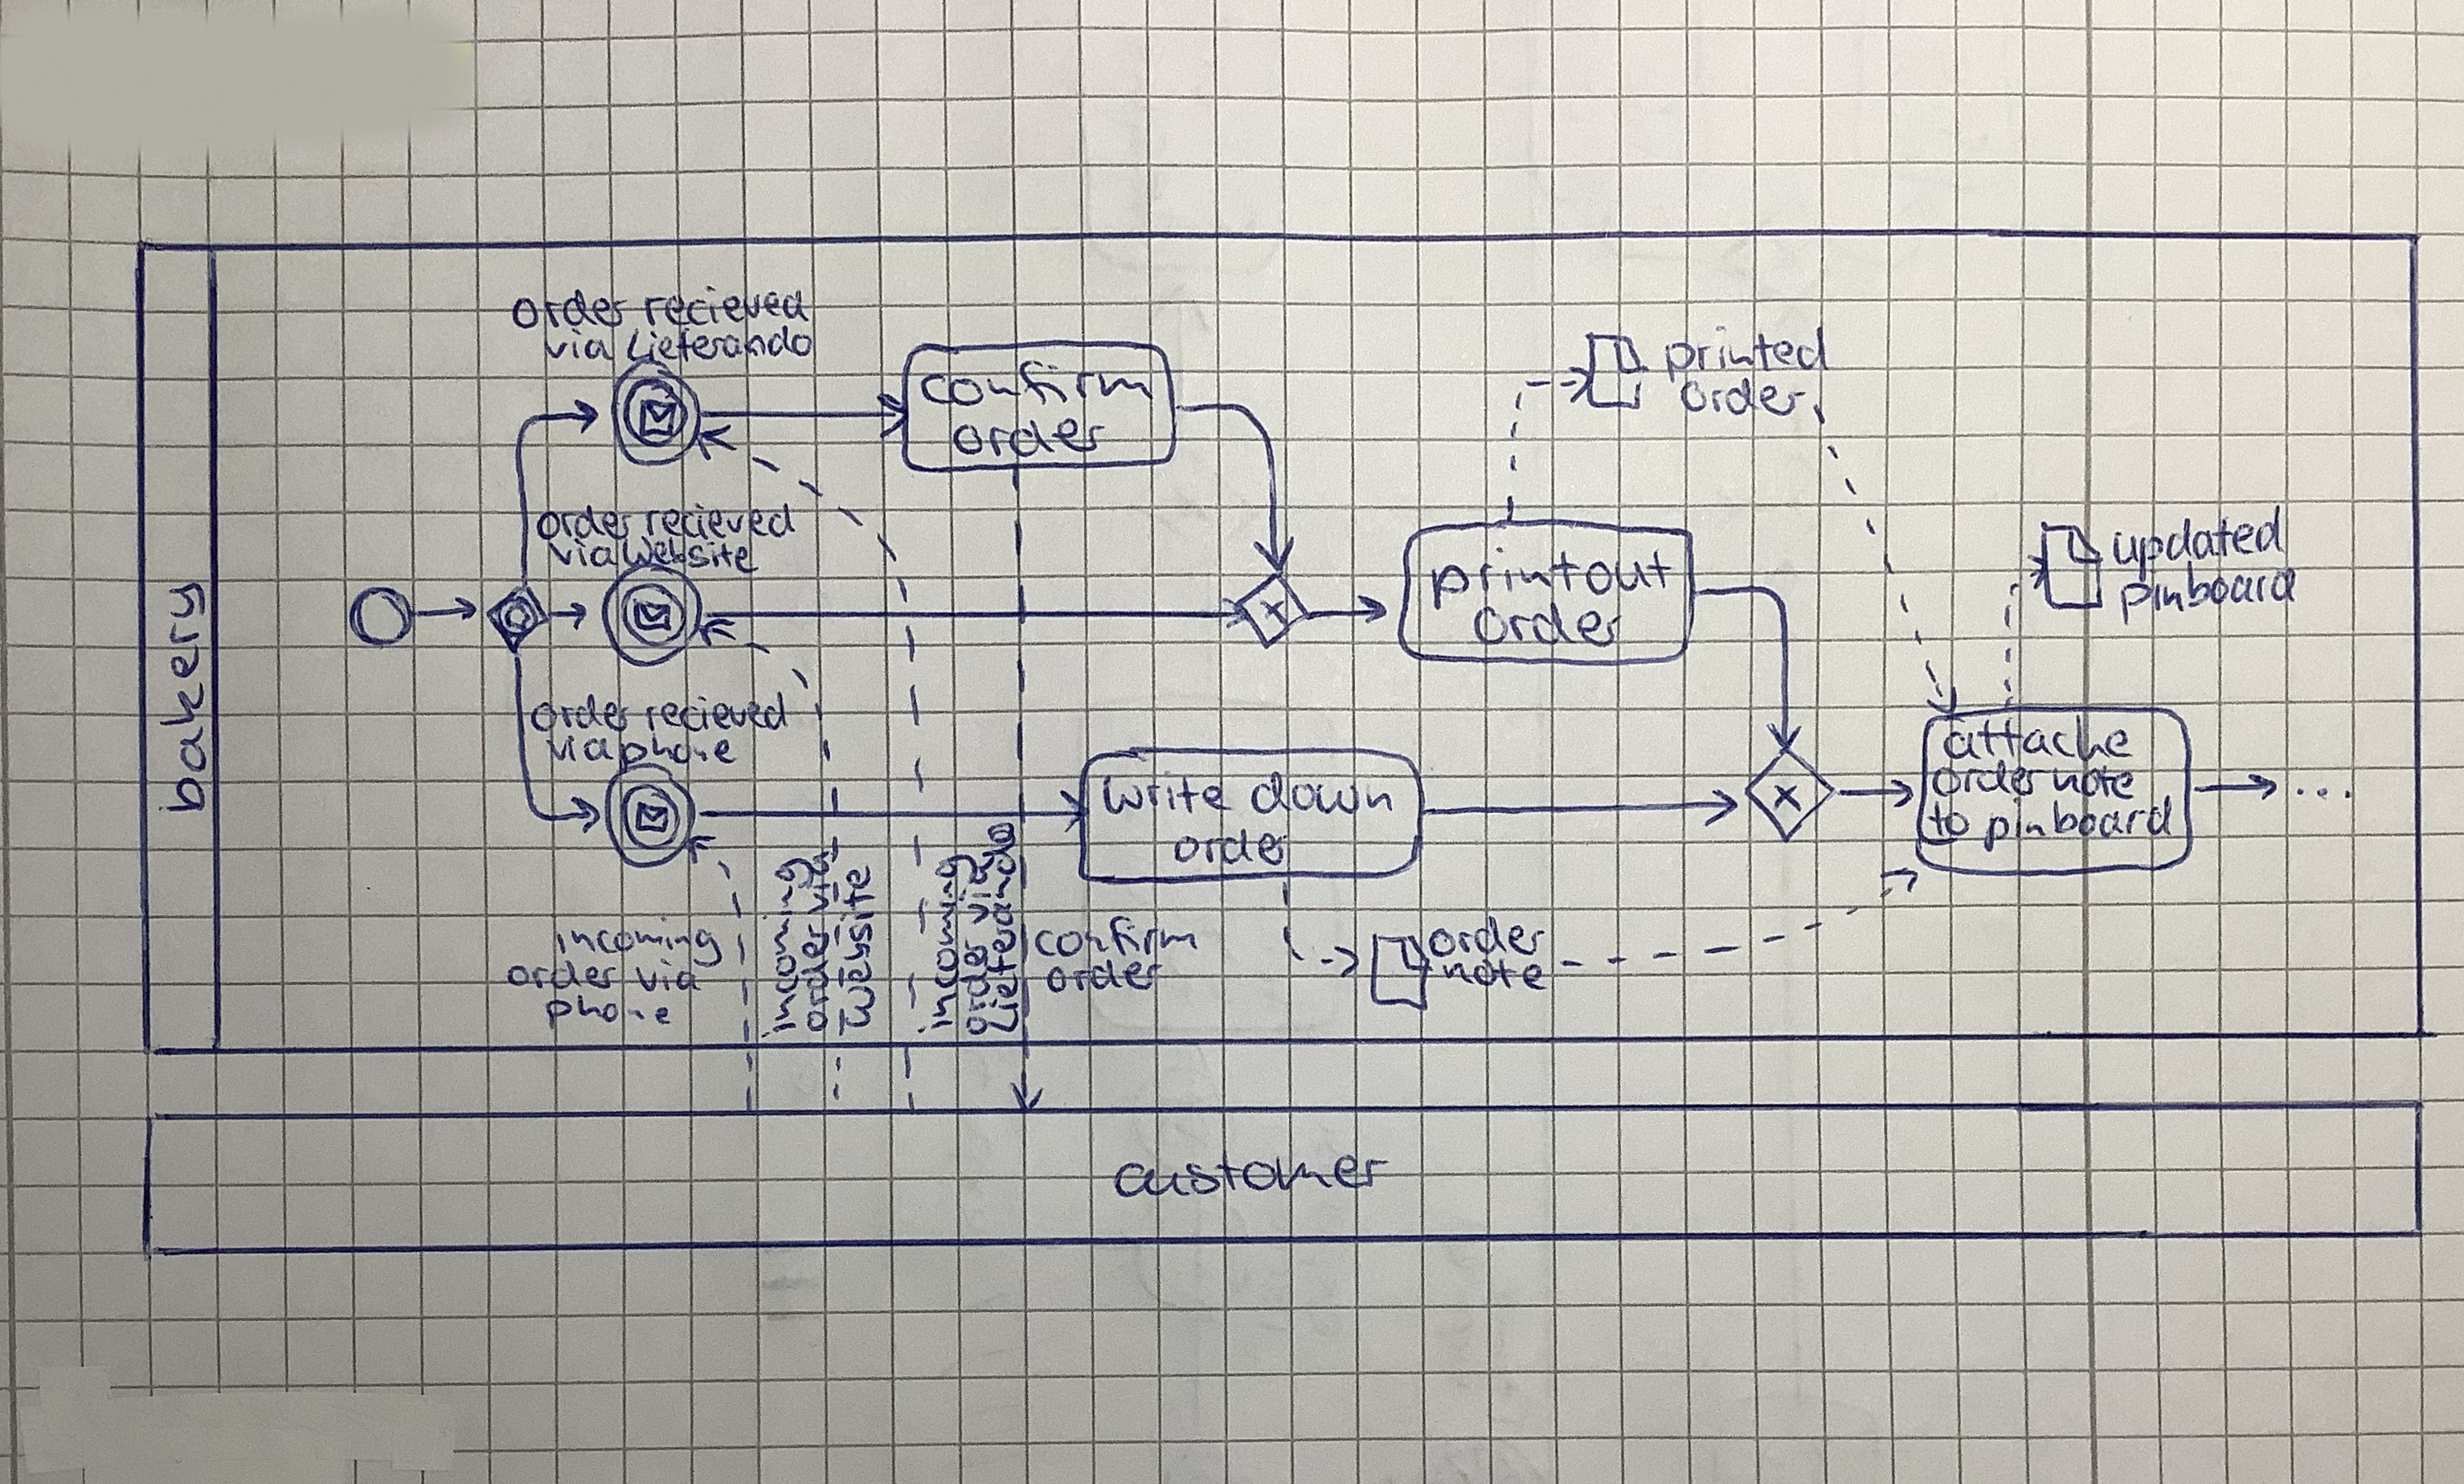 order recieved
via Lieferando
confirm
order
printed
order
order recieved
via Website
printout
order
updated
pinboard
bakery
order recieved
via phone
write down
order
attache
order note
to pinboard
...
incoming
order via
phone
incoming
order via
Website
incoming
order via
Lieferando
confirm
order
order
note
customer